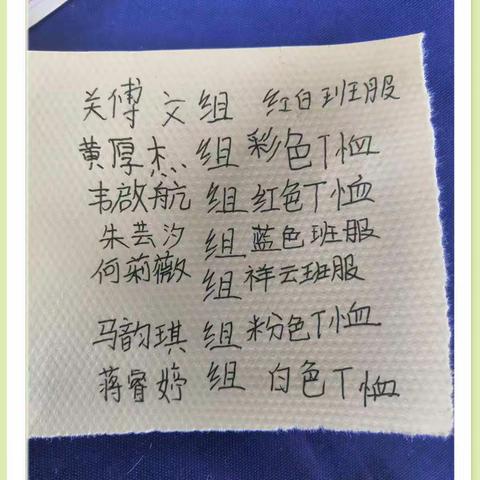 关傅文组 红白班服
黄厚杰组 彩色T恤
韦啟航组 红色T恤
朱芸汐组 蓝色班服
何莉薇组 祥云班服
马韵琪组 粉色T恤
蒋睿婷组 白色T恤